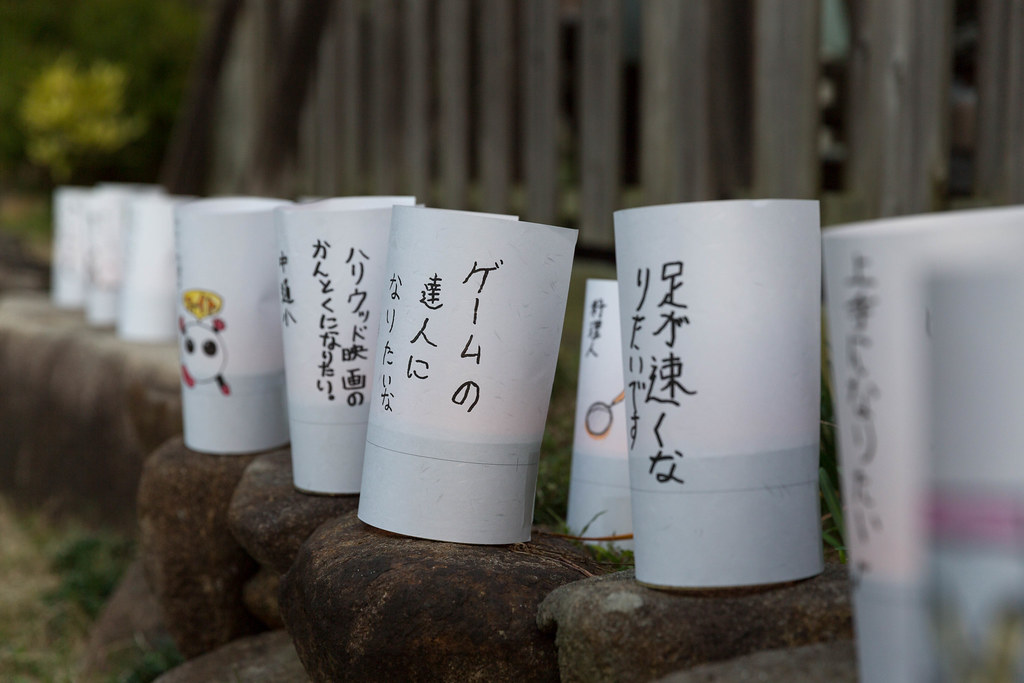 ハリウッド映画の
かんとくになりたい。
ゲームの
達人に
なりたいな
料理人
足が速くな
りたいです